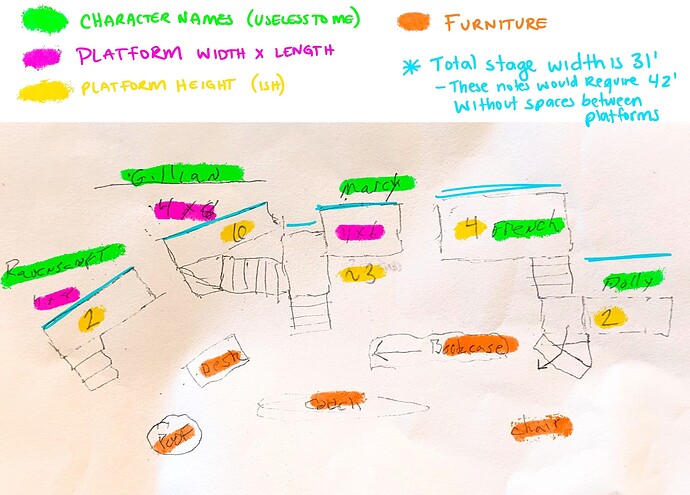 CHARACTER NAMES (USELESS TO ME)
PLATFORM WIDTH X LENGTH
PLATFORM HEIGHT (ISH)
FURNITURE
* Total stage width is 31'
- These notes would require 42'
without spaces between
platforms
Gillian
Marcy
4 French
Ravenscroft
~3
Dolly
2
2
Desk
Bookcase
Couch
Poof
Chair